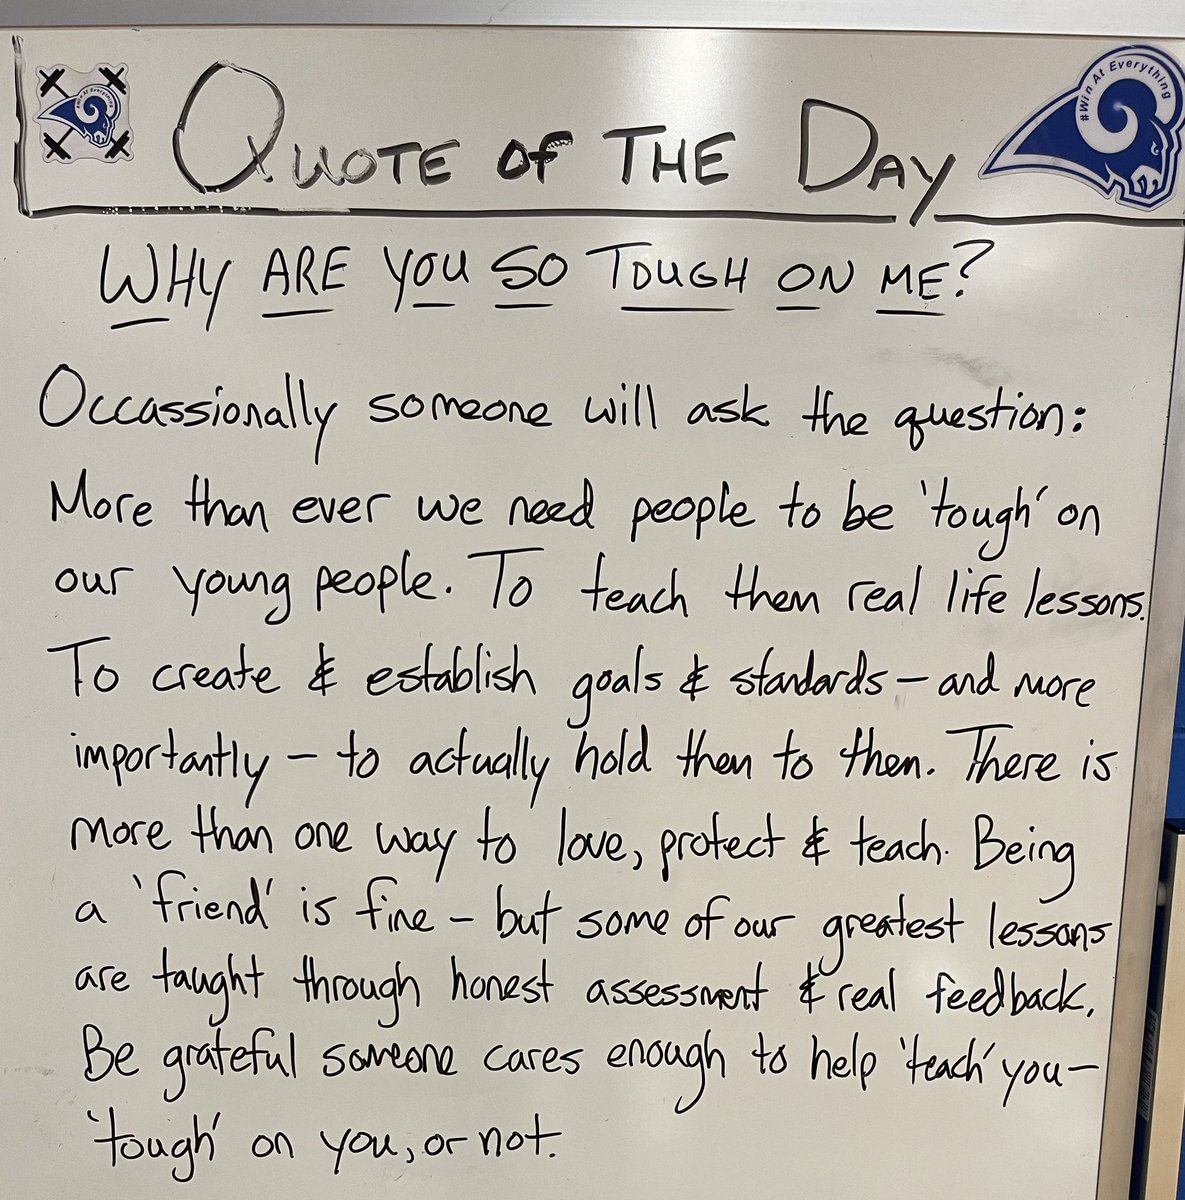 #Win At Everything
QUOTE OF THE DAY
#Win At Everything
WHY ARE YOU SO TOUGH ON ME?
Occassionally someone will ask the question:
More than ever we need people to be 'tough' on
our young people. To teach them real life lessons.
To create & establish goals & standards – and more
importantly – to actually hold them to them. There is
more than one way to love, protect & teach. Being
a 'friend' is fine – but some of our greatest lessons
are taught through honest assessment & real feedback.
Be grateful someone cares enough to help 'teach' you –
'tough' on you, or not.